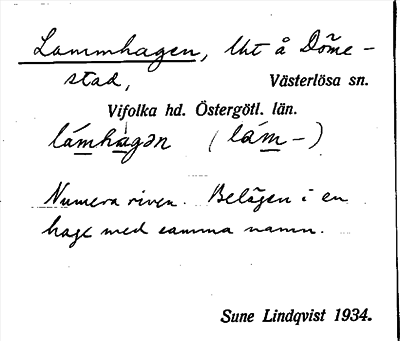 Lammhagen, Uht å Döme-
stad, Västerlösa sn.
Vifolka hd. Östergötl. län.
lámhàgən (lám-)
Numera riven. Belägen i en
hage med samma namn.
Sune Lindqvist 1934.